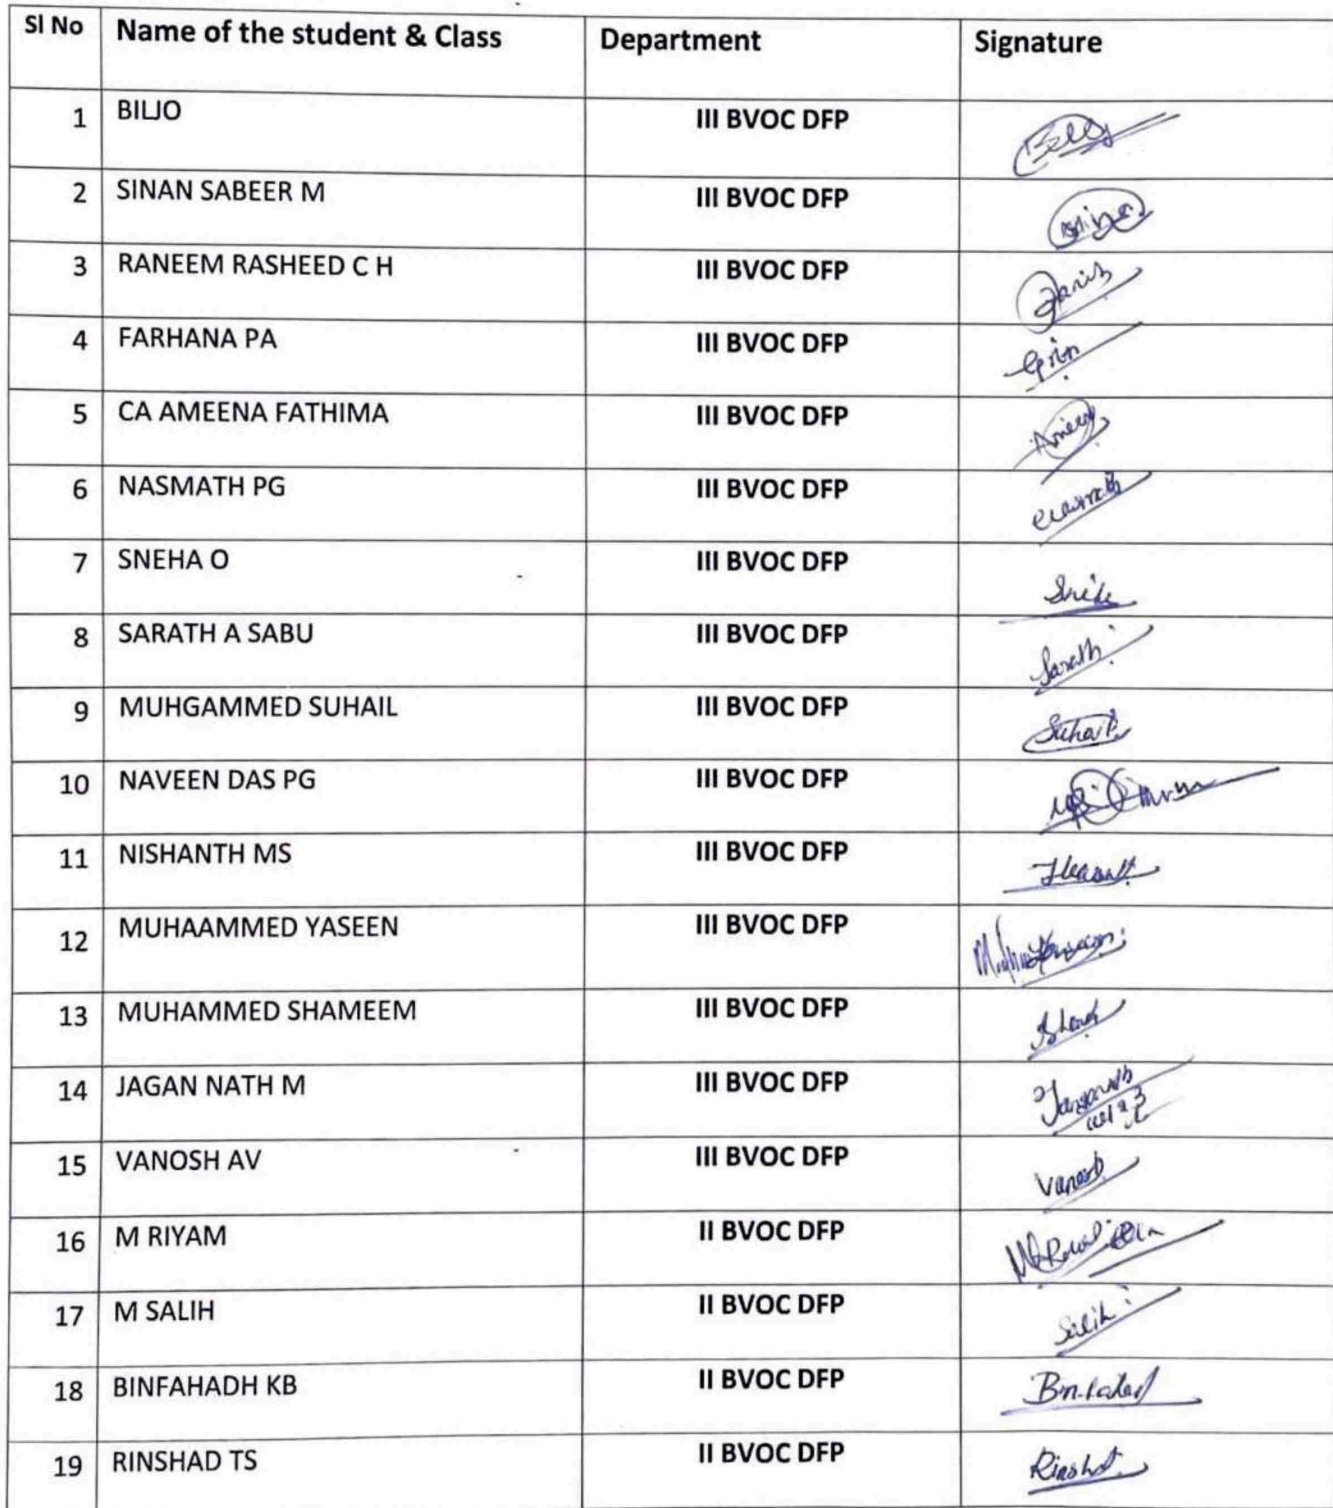 Sl No Name of the student & Class Department Signature
1 BILJO III BVOC DFP
2 SINAN SABEER M III BVOC DFP
3 RANEEM RASHEED C H III BVOC DFP
4 FARHANA PA III BVOC DFP
5 CA AMEENA FATHIMA III BVOC DFP
6 NASMATH PG III BVOC DFP
7 SNEHA O III BVOC DFP
8 SARATH A SABU III BVOC DFP Sarath
9 MUHGAMMED SUHAIL III BVOC DFP Suhail
10 NAVEEN DAS PG III BVOC DFP
11 NISHANTH MS III BVOC DFP
12 MUHAAMMED YASEEN III BVOC DFP
13 MUHAMMED SHAMEEM III BVOC DFP
14 JAGAN NATH M III BVOC DFP
15 VANOSH AV III BVOC DFP
16 M RIYAM II BVOC DFP
17 M SALIH II BVOC DFP Salih
18 BINFAHADH KB II BVOC DFP
19 RINSHAD TS II BVOC DFP